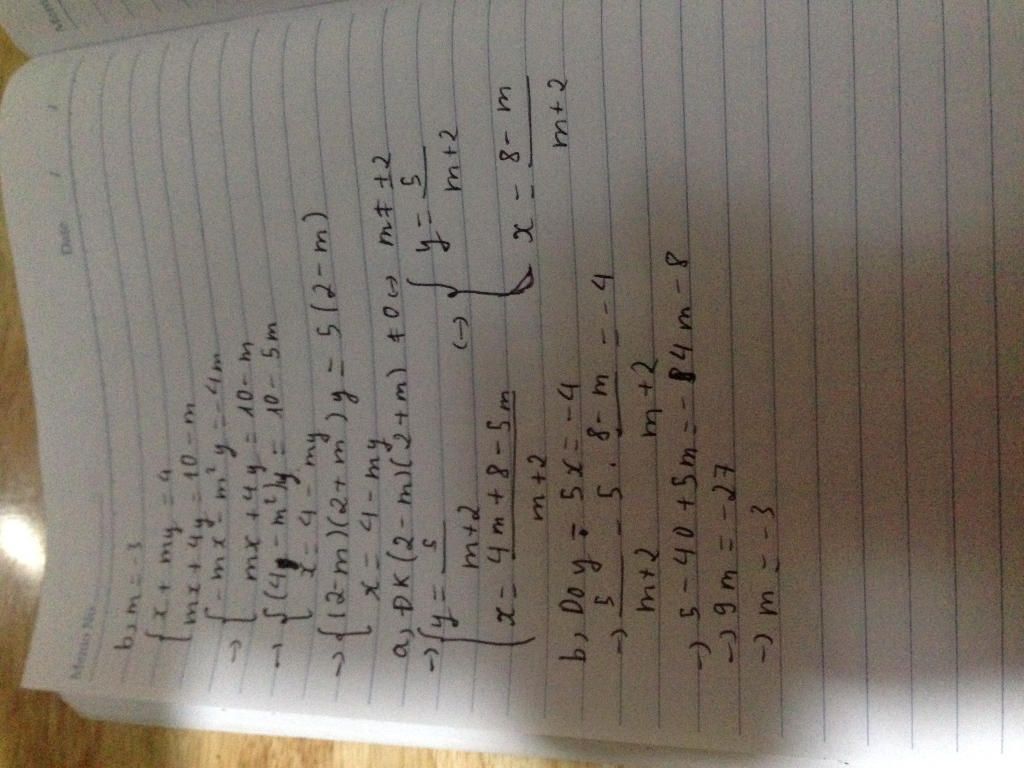 Memo No.
Date / /
b, m = -3
{ x + my = 4
mx + 4y = 10 - m
→ { -mx - m²y = -4m
mx + 4y = 10 - m
→ { (4 - m²)y = 10 - 5m
x = 4 - my
→ { (2-m)(2+m)y = 5(2-m)
x = 4 - my
a, ĐK (2-m)(2+m) ≠ 0 ↔ m ≠ ±2
→ { y = 5/(m+2)
x = (4m + 8 - 5m)/(m+2)
(→) { y = 5/(m+2)
x = (8 - m)/(m+2)
b, Do y - 5x = -4
→ 5/(m+2) - 5 . (8 - m)/(m+2) = -4
→ 5 - 40 + 5m = -4m - 8
→ 9m = -27
→ m = -3